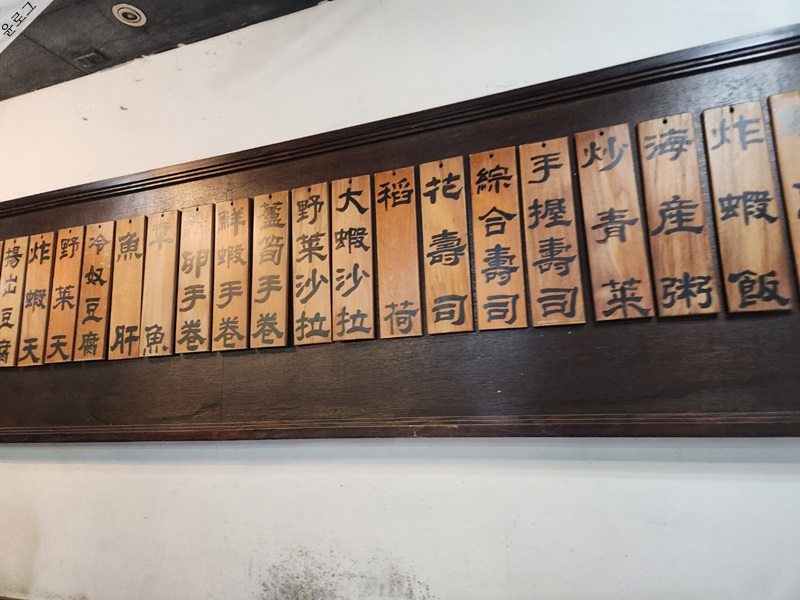 윤로그
炸蝦飯
海産粥
炒青菜
手握壽司
綜合壽司
花壽司
稻荷
大蝦沙拉
野菜沙拉
蘆筍手卷
鮮蝦手卷
卵手卷
魚
魚肝
冷奴豆腐
野菜天
炸蝦天
揚出豆腐